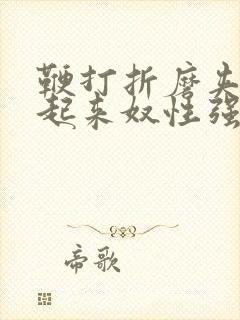 鞭打折磨夹
起来奴性强
帝歌